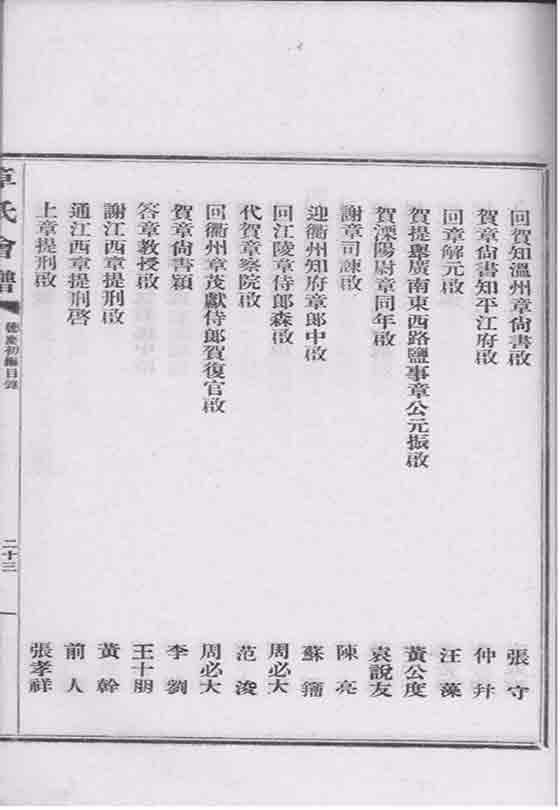 回賀知溫州章尚書啟 張守
賀章尚書知平江府啟 仲并
回章解元啟 汪藻
賀提舉廣南東西路鹽事章公元振啟 黃公度
賀溧陽尉章同年啟 袁說友
謝章司諫啟 陳亮
迎衢州知府章郎中啟 蘇籀
回江陵章侍郎森啟 周必大
代賀章察院啟 范浚
回衢州章茂獻侍郎賀復官啟 周必大
賀章尚書穎 李劉
答章教授啟 王十朋
謝江西章提刑啟 黃幹
通江西章提刑啓 前人
上章提刑啟 張孝祥
章氏會譜
德慶初編目錄
二十三